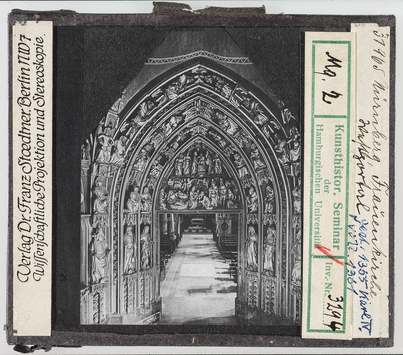 Verlag Dr. Franz Stoedtner, Berlin NW7
Wissenschaftliche Projektion und Stereoskopie.
Mq. 2
Kunsthistor. Seminar
der
Hamburgischen Universität
Inv. Nr. 3294
31165 Nürnberg, Frauenkirche